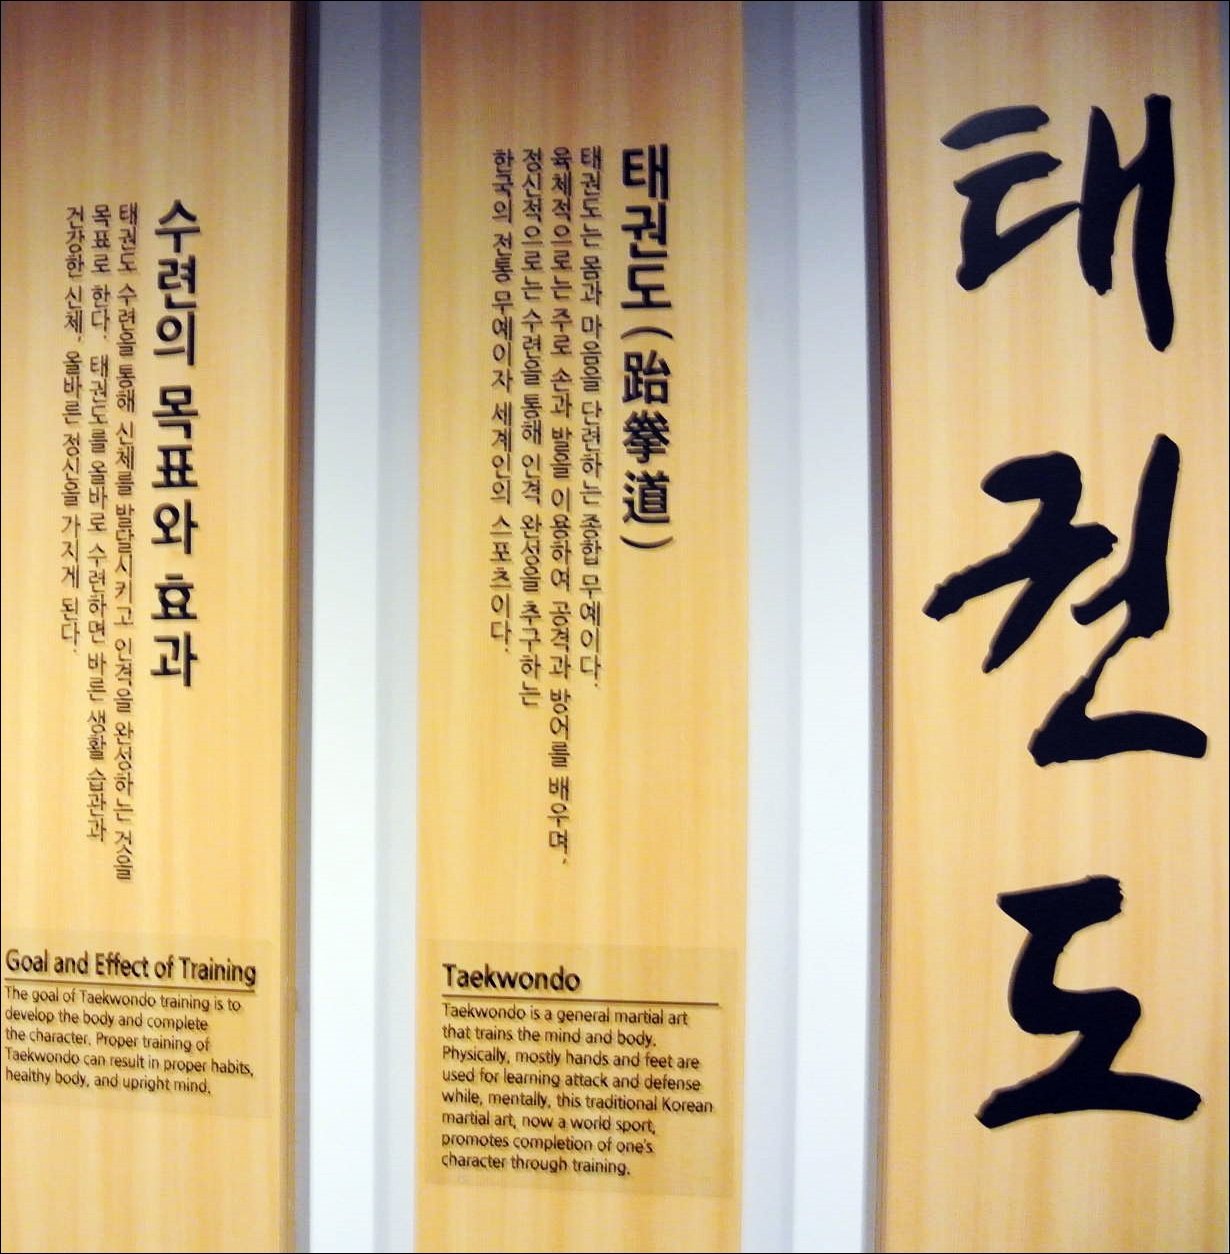 태권도
태권도(跆拳道)
태권도는 몸과 마음을 단련하는 종합 무예이다.
육체적으로는 주로 손과 발을 이용하여 공격과 방어를 배우며,
정신적으로는 수련을 통해 인격 완성을 추구하는
한국의 전통 무예이자 세계인의 스포츠이다.
Taekwondo
Taekwondo is a general martial art
that trains the mind and body.
Physically, mostly hands and feet are
used for learning attack and defense
while, mentally, this traditional Korean
martial art, now a world sport,
promotes completion of one's
character through training.
수련의 목표와 효과
태권도 수련을 통해 신체를 발달시키고 인격을 완성하는 것을
목표로 한다. 태권도를 올바로 수련하면 바른 생활 습관과
건강한 신체, 올바른 정신을 가지게 된다.
Goal and Effect of Training
The goal of Taekwondo training is to
develop the body and complete
the character. Proper training of
Taekwondo can result in proper habits,
healthy body, and upright mind.